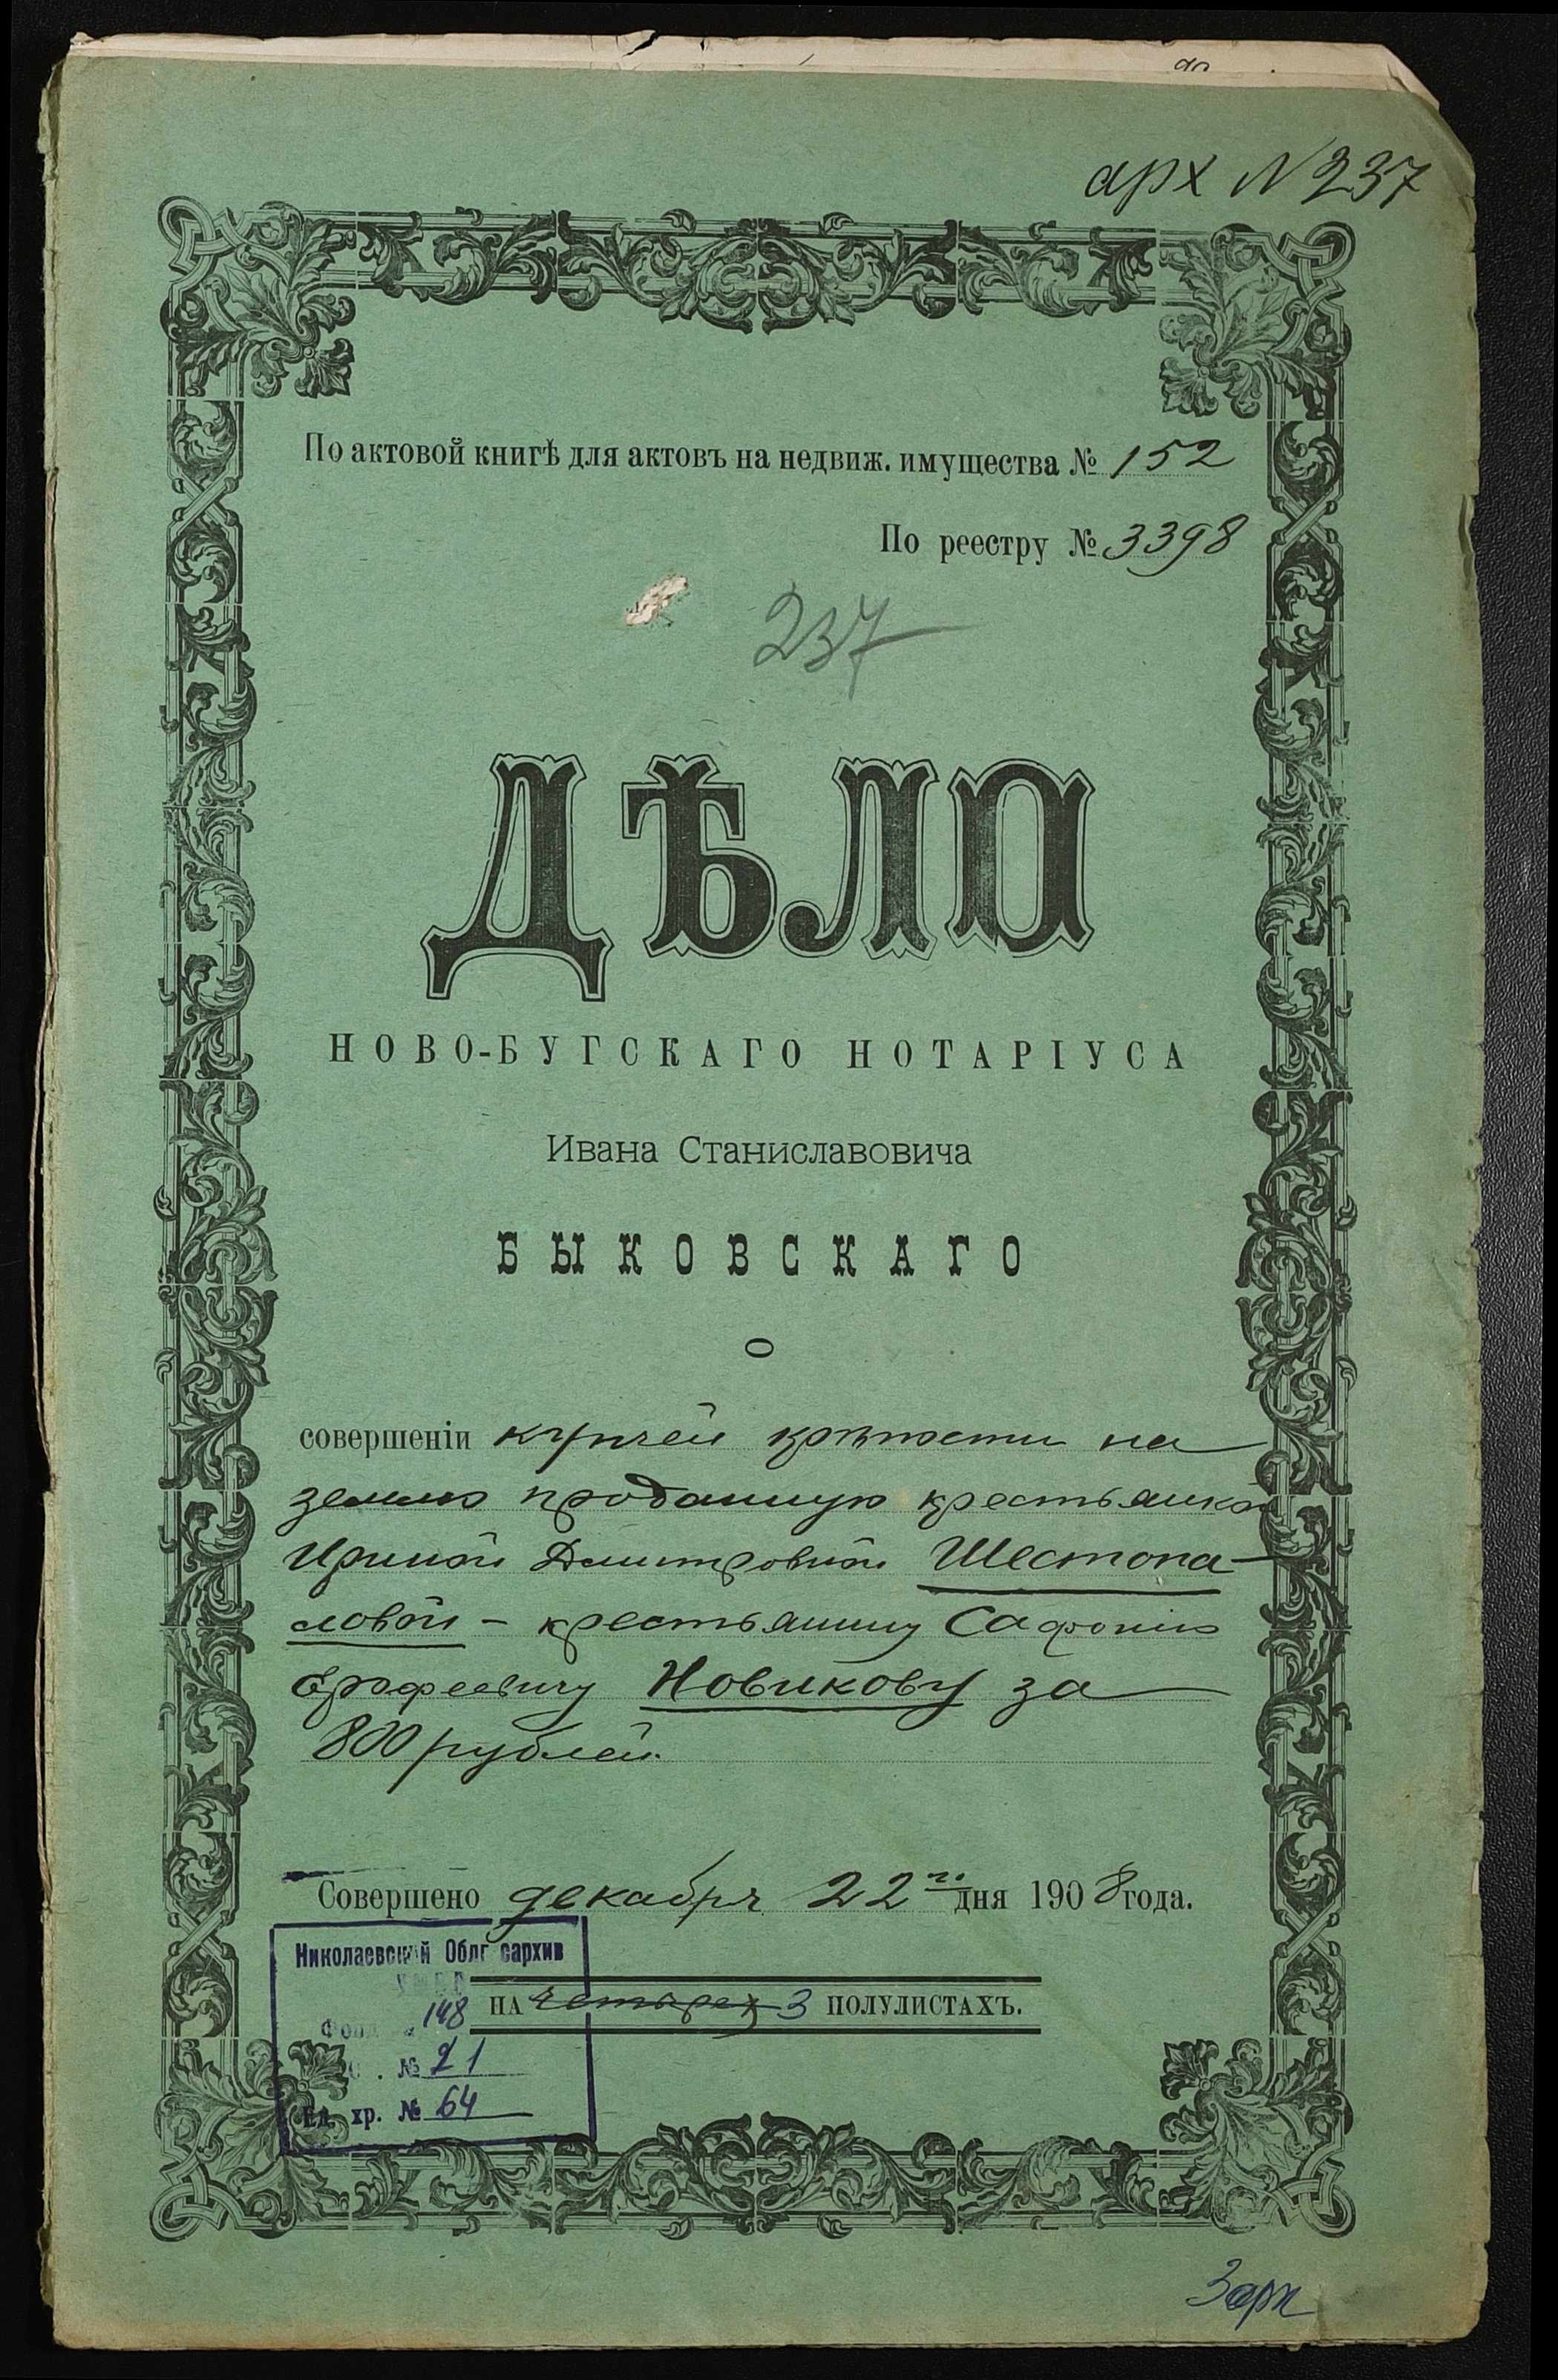 арх N 237
По актовой книгѣ для актовъ на недвиж. имущества № 152
По реестру № 3398
237
ДѢЛО
НОВО-БУГСКАГО НОТАРІУСА
Ивана Станиславовича
БЫКОВСКАГО
О
совершеніи купчей крѣпости на
землю проданную крестьянкой
Ириной Дмитровной Шестопа-
ловой - крестьянину Сафонію
Ерофеевичу Новикову за
800 рублей.
Совершено декабря 22го дня 1908 года.
Николаевский Обл сархив
148
НА четырех 3 ПОЛУЛИСТАХЪ.
№ 21
Ед. хр. № 64